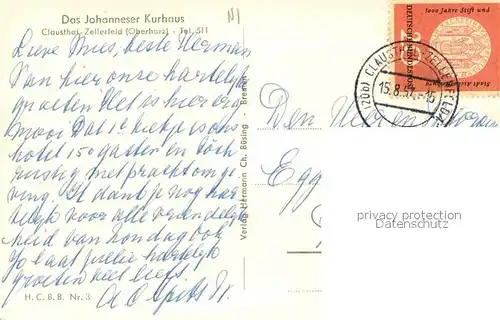 Das Johanneser Kurhaus
Clausthal-Zellerfeld (Oberharz) - Tel. 511
Lieve Mies, beste Herman
Van hier onze hartelijke
groeten. Het is hier erg
mooi. Dat is ons
hotel 150 gasten en toch
rustig met prachtomge
ving. Ik dank je nog har
telijk voor alle vriendelijk
heid van Zondag ook
Jo laat jullie hartelijk
groeten veel liefs
H. C. B. B. Nr. 3
Verlag Hermann Ch. Büsing - Bremen
1000 Jahre Stift und
Stadt Essen
DEUTSCHE BUNDESPOST
(20b) CLAUSTHAL-ZELLERFELD
15.8.57.-15
Den Heer en Mevrouw
Egg
privacy protection
VEIKKOS.COM